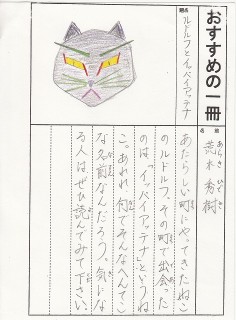 おすすめの一冊
題名
ルドルフとイッパイアッテナ
名前
荒木秀樹
あらき ひでき
あたらしい町にやってきたねこ
のルドルフ。その町で出会った
のは「イッパイアッテナ」というね
こ。あれれ、何でそんなへんてこ
な名前なんだろう。気にな
る人はぜひ読んでみて下さい。